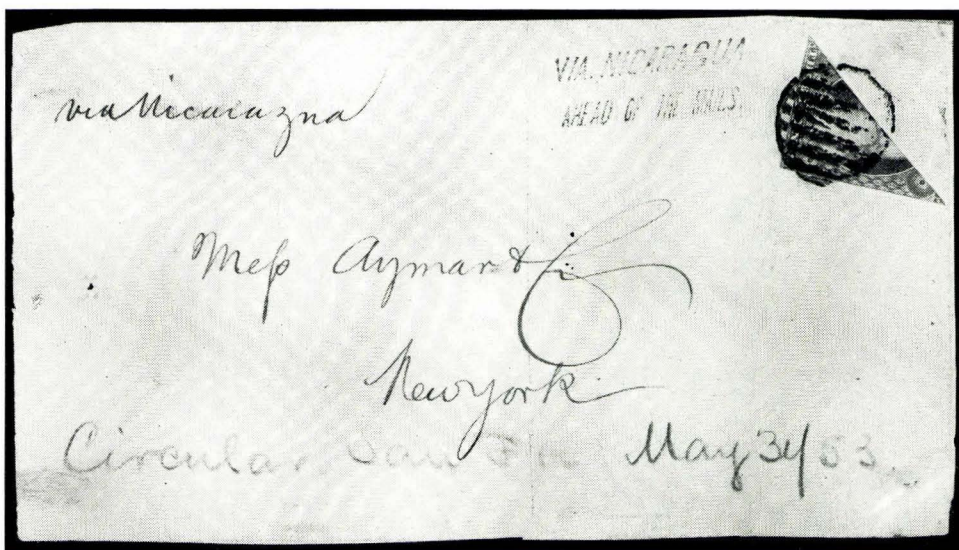 via Nicaragua
VIA. NICARAGUA
AHEAD OF THE MAILS.
Mess Aymar & Co
New York
Circular San May 53